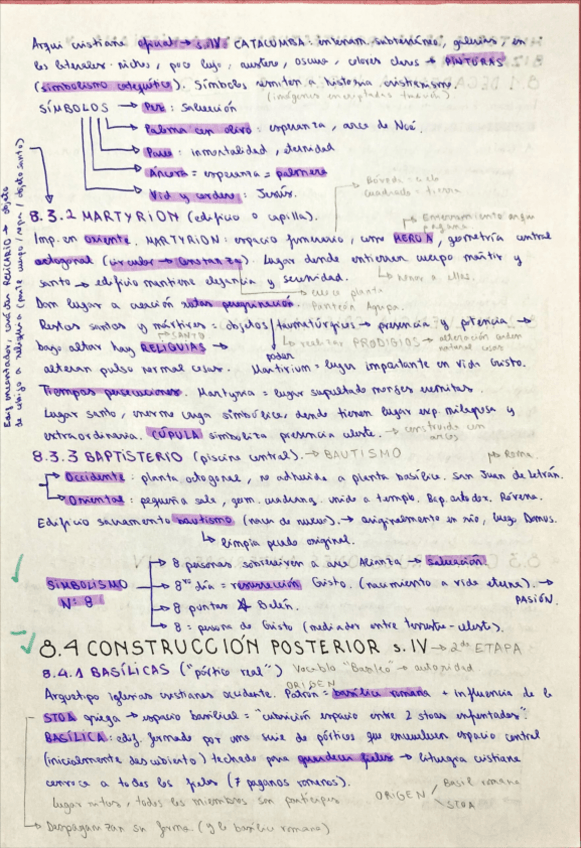 Arqui cristiana oficial → s.IV. CATACUMBA: interram. subterráneo, galerías, en
los laterales nichos, poca luz, austero, oscuro, colores claros → PINTURAS
(simbolismo catequético). Símbolos remiten a historia cristianismo.
(imágenes encriptadas
SÍMBOLOS → Pez: salvación
Paloma con olivo: esperanza, arca de Noé
Pavo: inmortalidad, eternidad
Áncora = esperanza = palmera
Vid y cordero: Jesús.
Bóveda = cielo
cuadrado = tierra
8.3.2 MARTYRION (edificio o capilla).
Enterramiento arqui pagana
Imp. en oriente. MARTYRION: espacio funerario, como HEROA, geometría central
octogonal (circular → Constanza). Lugar donde entierran cuerpo mártir y
honor a ellas.
santo → edificio mantiene elegancia y serenidad.
planta
Dan lugar a creación rutas peregrinación. Panteón Agripa.
Restos santos y mártires = objetos taumatúrgicos → presencia y potencia →
SANTO
realizar PRODIGIOS → alteración orden natural cosas
bajo altar hay RELIQUIAS →
poder
alteran pulso normal cosas. Martirium = lugar importante en vida Cristo.
Tiempos persecuciones. Martyria = lugar sepultado monjes eremitas.
Lugar santo, enorme carga simbólica, donde tienen lugar exp. milagrosa y
extraordinaria. CÚPULA simboliza presencia celeste. → construida con arcos
8.3.3 BAPTISTERIO (piscina central). → BAUTISMO
Roma
Occidente: planta octogonal, no adherida a planta basílica. San Juan de Letrán.
Oriental: pequeña sala, geom. cuadrang. unido a templo. Bap. ortodox. Rávena.
Edificio sacramento bautismo → originalmente en río, luego Domus.
limpia pecado original.
SIMBOLISMO Nº 8
8 personas sobreviven a arca Alianza → salvación.
8vo día = resurrección Cristo. (nacimiento a vida eterna). → PASIÓN.
8 puntas Belén.
8: persona de Cristo (mediador entre terrestre-celeste).
8.4 CONSTRUCCIÓN POSTERIOR s. IV → 2da ETAPA
8.4.1 BASÍLICAS ("pórtico real") Vocablo "Basileo" → autoridad
ORIGEN
Arquetipo iglesias cristianas occidente. Patrón = basílica romana + influencia de la
STOA griega → espacio basilical = "cubrición espacio entre 2 stoas enfrentadas".
BASÍLICA: edif. formado por una serie de pórticos que envuelven espacio central
(inicialmente descubierto) techado para guardecer fieles → liturgia cristiana
convoca a todos los fieles (≠ paganos romanos).
Lugar ritos, todos los miembros son partícipes
ORIGEN Basíl romana
STOA
Despaganizan su forma. (y la basílica romana)